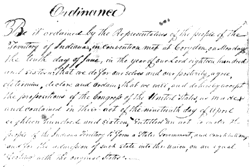 Ordinance
Be it ordained by the Representatives of the people of the
Territory of Indiana, in convention met at Corydon, on Monday
the tenth day of June, in the year of our Lord eighteen hundred
and sixteen, that we do for ourselves and our posterity, agree,
determine, declare and ordain, that we will and do hereby accept
the propositions of the Congress of the United States, as made
and contained in their act of the nineteenth day of April
eighteen hundred and sixteen, entitled "An act to enable the
people of the Indiana Territory to form a State Government, and constitution
and for the admission of such state into the union on an equal
footing with the original States"